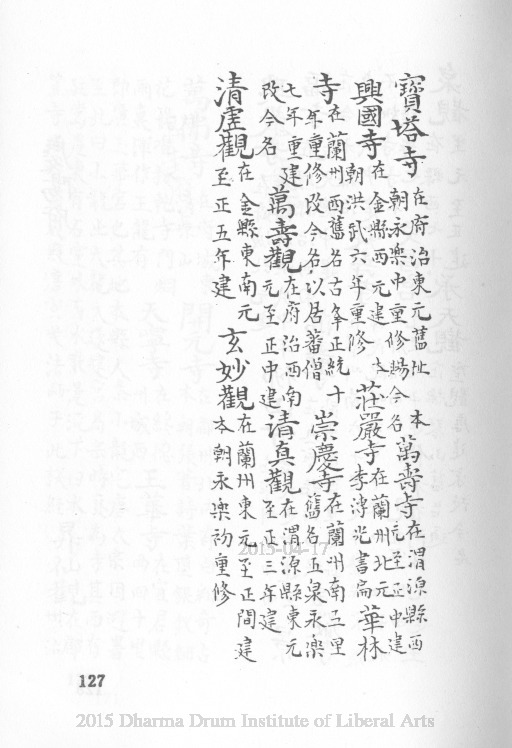 寶塔寺在府治東元舊址本朝永樂中重修賜今名萬壽寺在渭源縣西元至正中建
興國寺在金縣西元建本朝洪武六年重修莊嚴寺在蘭州北元李溥光書扁華林
寺在蘭州西舊名古峯正統十年重修改今名以居蕃僧崇慶寺在蘭州南三里舊名五泉永樂
七年重建改今名萬壽觀在府治西南元至正中建清真觀在渭源縣東元至正三年建
清崖觀在金縣東南元至正五年建玄妙觀在蘭州東元至正間建本朝永樂初重修
2015-04-17
127
2015 Dharma Drum Institute of Liberal Arts